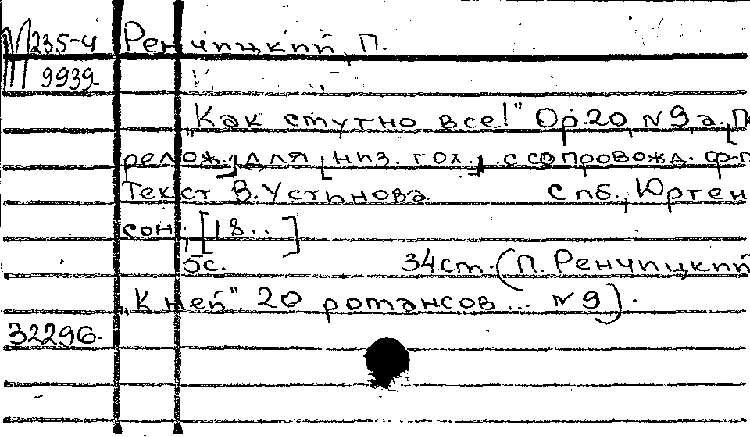 М 235-4 Ренчицкий, П.
9939-
„Как смутно все!" Op. 20, № 9а. [Пе
релож.] для [низ. гол.], с сопровожд. ф-п
Текст В. Устинова Спб., Юрген
сон, [18..]
5с. 34см. (П. Ренчицкий
„К ней" 20 романсов... № 9).
32296-